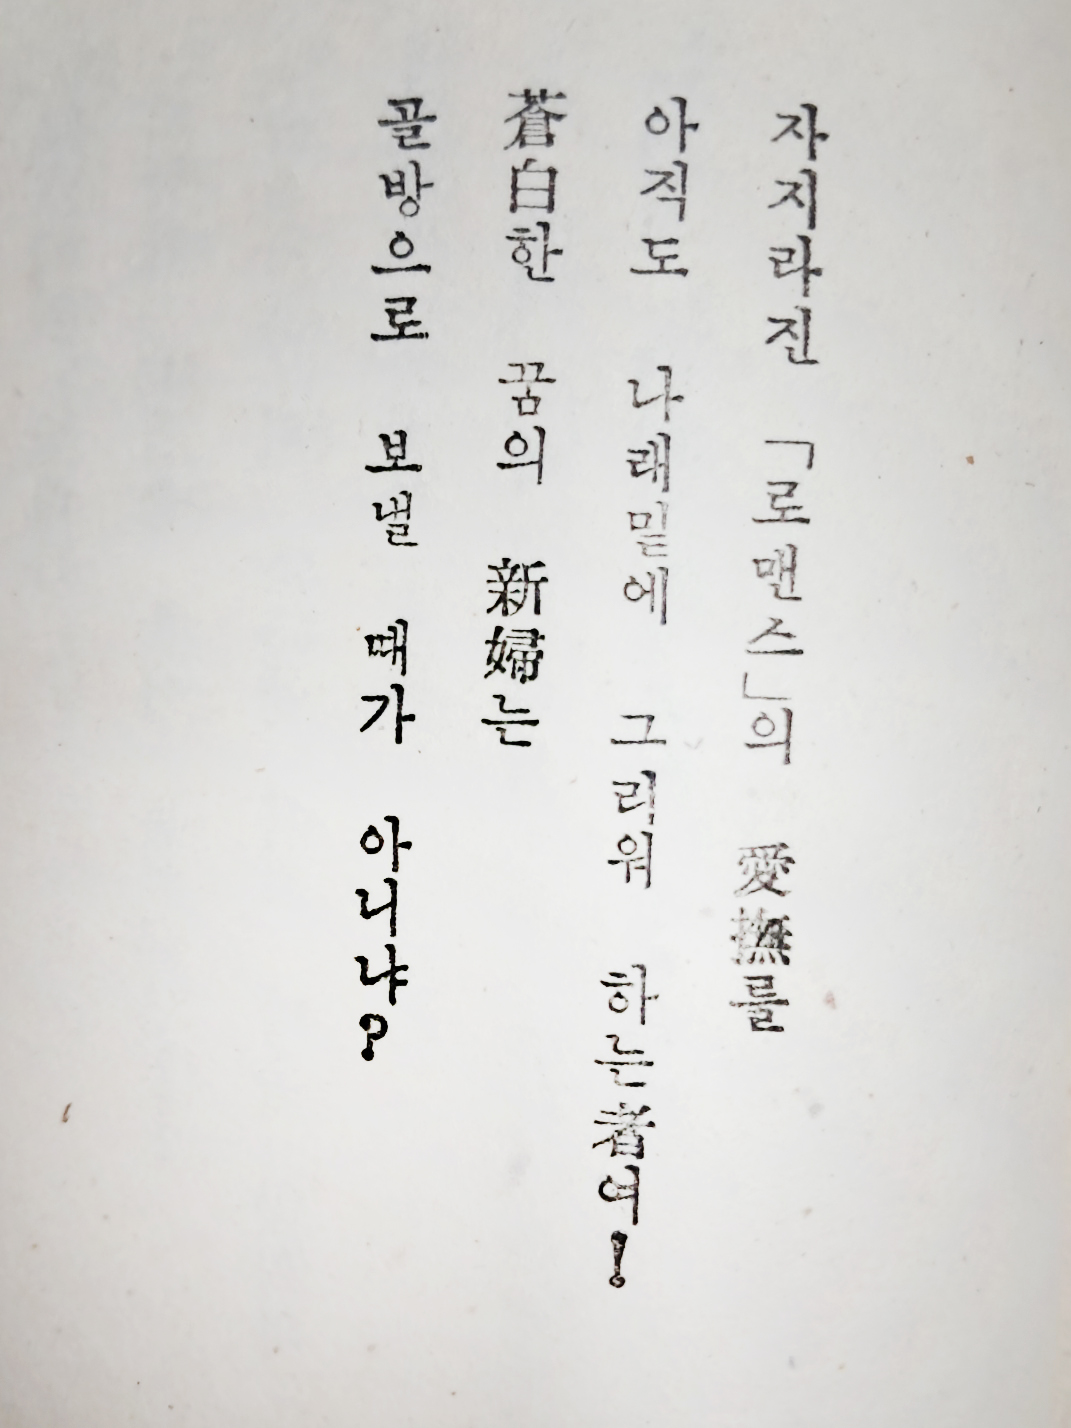 자지라진 「로맨스」의 愛撫를
아직도 나래밑에 그리워 하는者여!
蒼白한 꿈의 新婦는
골방으로 보낼 때가 아니냐?